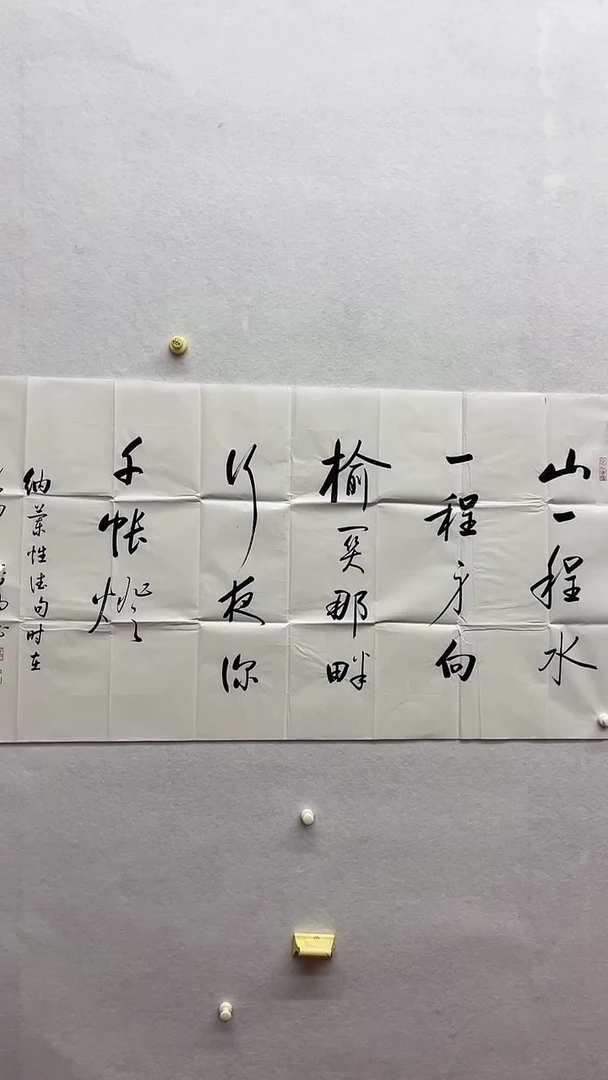 山一程水
一程身向
榆关那畔
行夜深
千帐灯
纳兰性德句时在